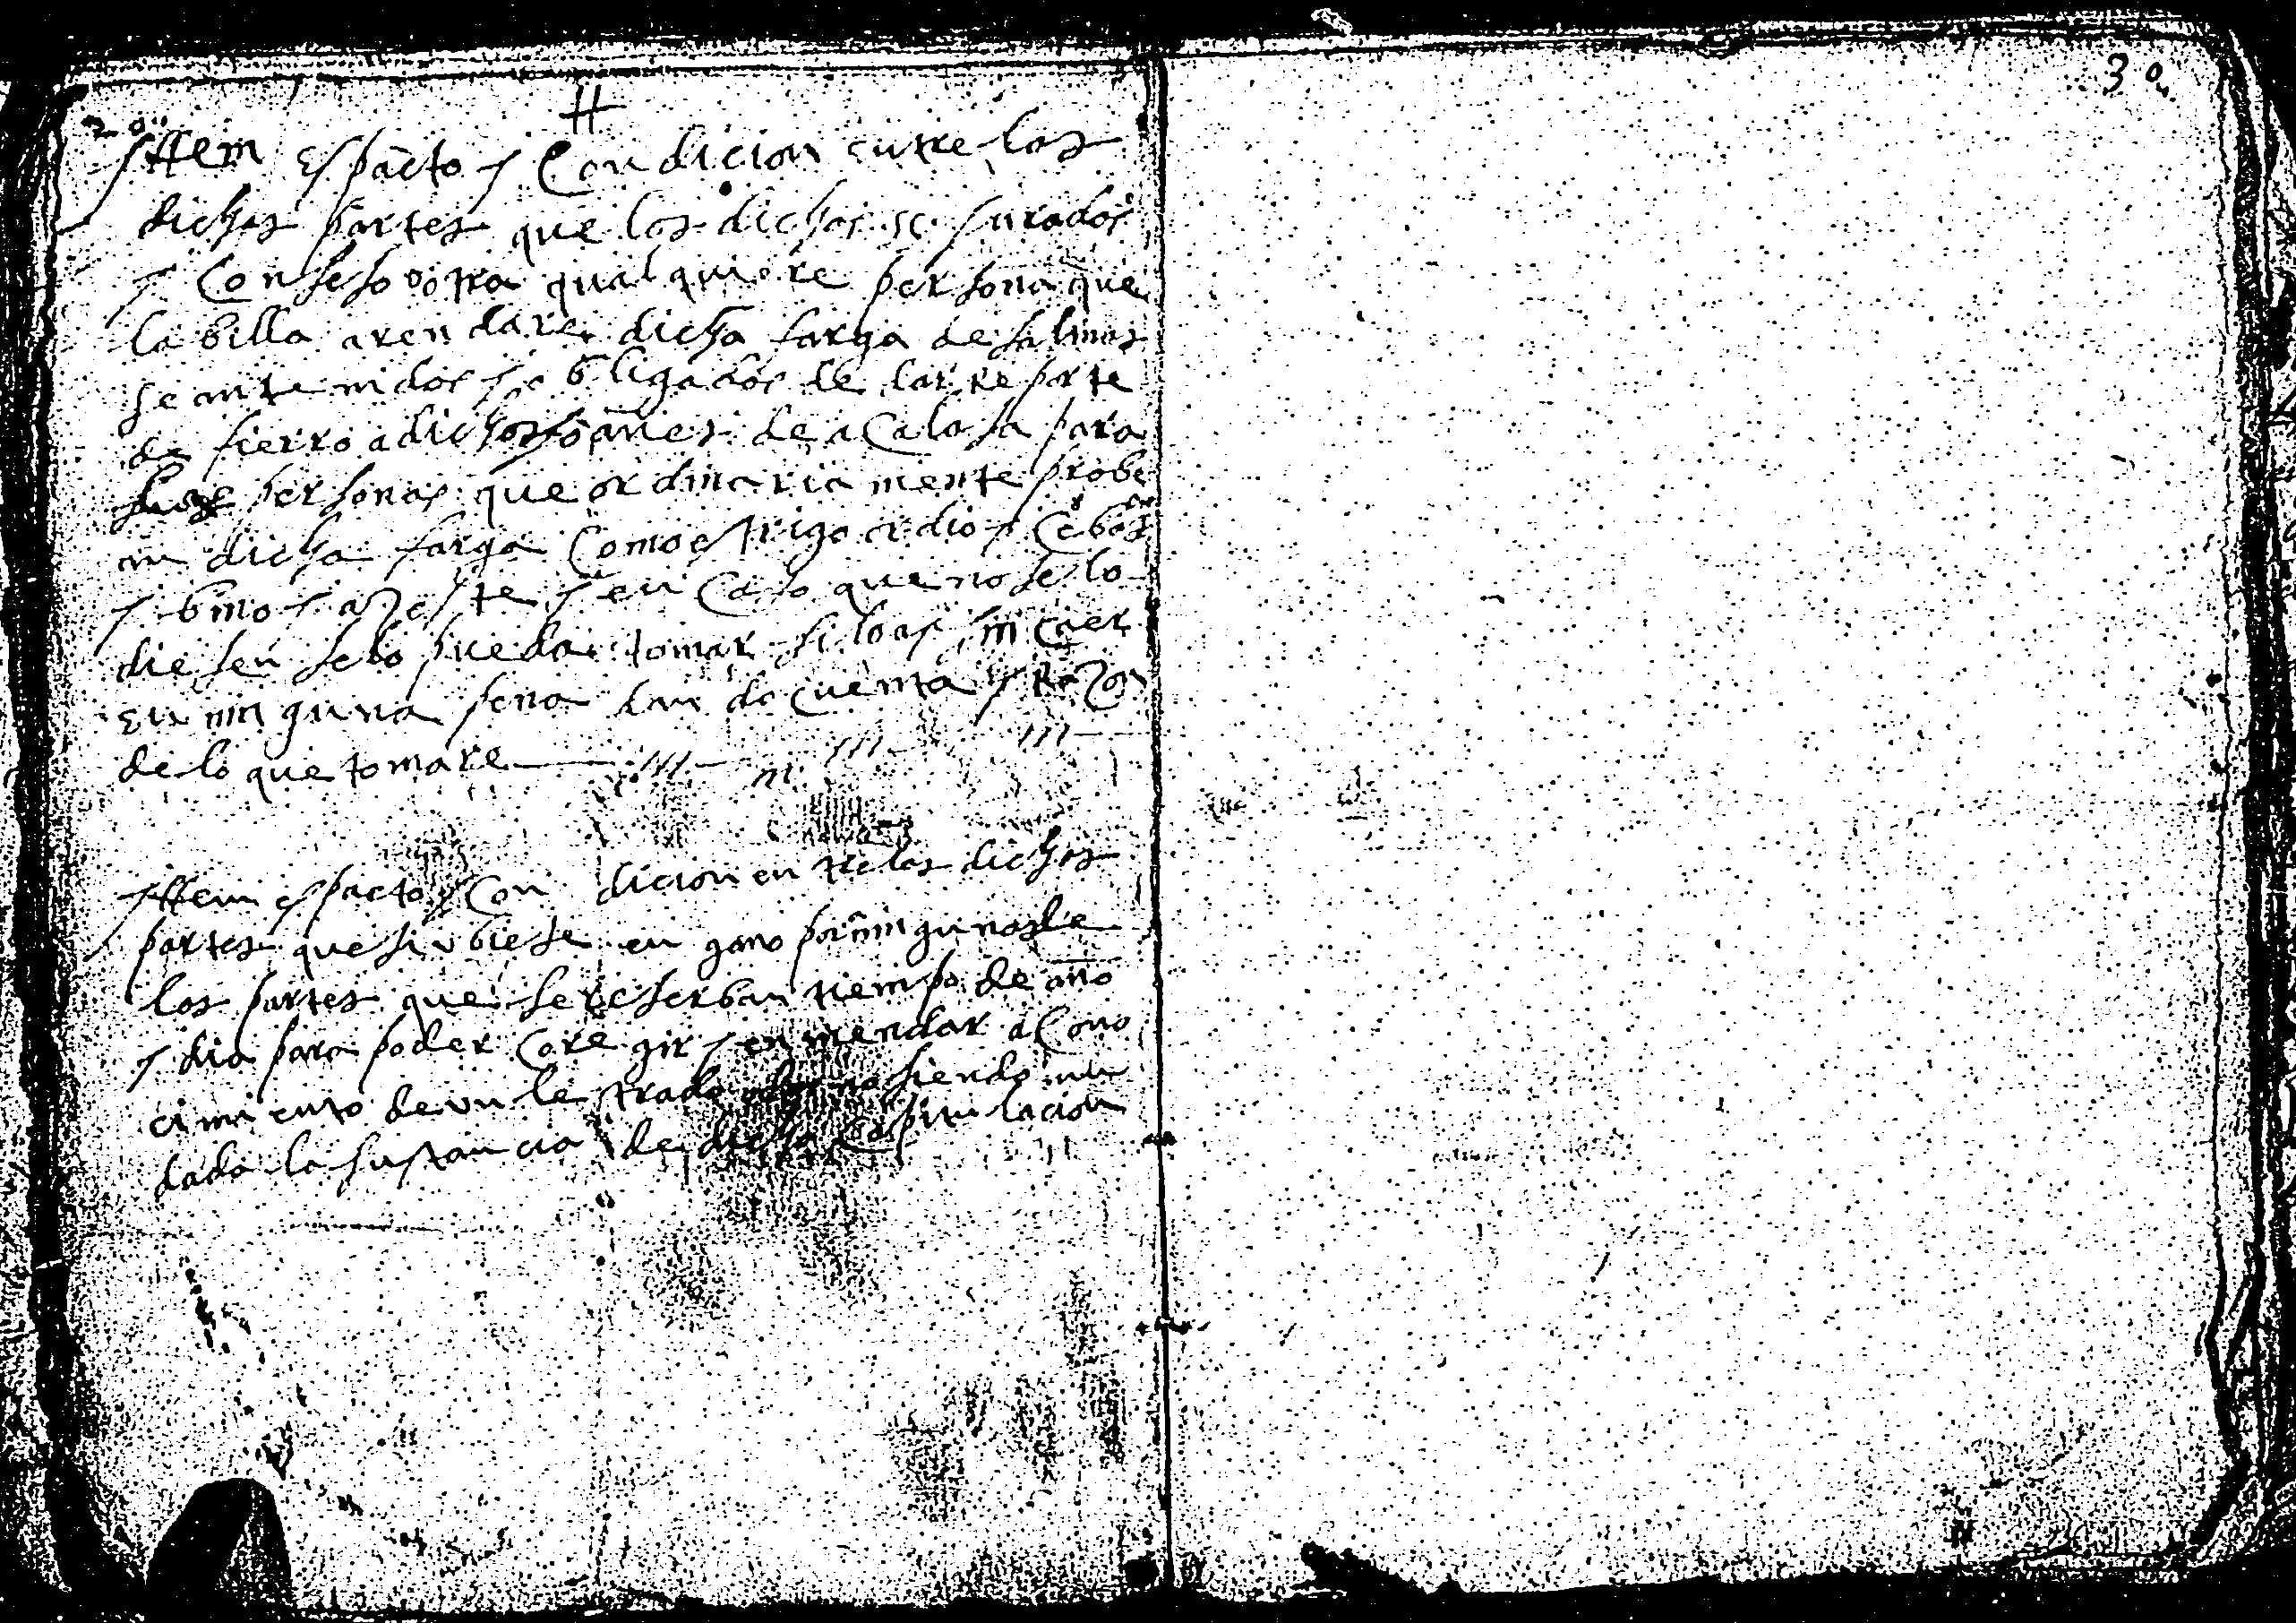 3º
Ittem es pacto y Condicion entre las
dichas partes que los dichos Jurados
y Consejo o otra qualquiere persona que
la billa arendare dicha farga de salinas
sean tenidos y obligados de dar reparte
de fierro a dichos Joanes de a Calasa para
personas que ordinariamente probe
an dicha farga Como es trigo ordio y Ceba
y bino y azeyte y en Caso que no se lo
diesen se lo pueda tomar si los sin Caer
en ninguna pena dando Cuenta y Razon
de lo que tomare
Ittem es pacto y Condicion entre las dichas
partes que si ubiese engano por ninguna de
las partes que se reserban tiempo de año
y dia para poder Coregir y enmendar a Cono
cimiento de un letrado no siendo mu
dada la sustancia de dicha Capitulacion